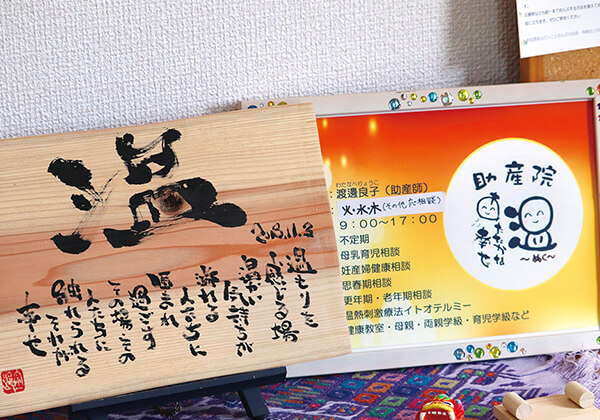 温
2013.11.2
温もりを
感じる場
温かい気持ちが
溢れる
人たちに
囲まれ
過ごす
その場・その
人たちに
触れられる
それが
幸せ
わたなべりょうこ
：渡邉良子（助産師）
：火・水・木(その他応相談)
９：００～１７：００
不定期
母乳育児相談
妊産婦健康相談
思春期相談
更年期・老年期相談
温熱刺激療法イトオテルミー
健康教室・母親・両親学級・育児学級など
助産院
温
あたたかな
幸せ
～ぬく～